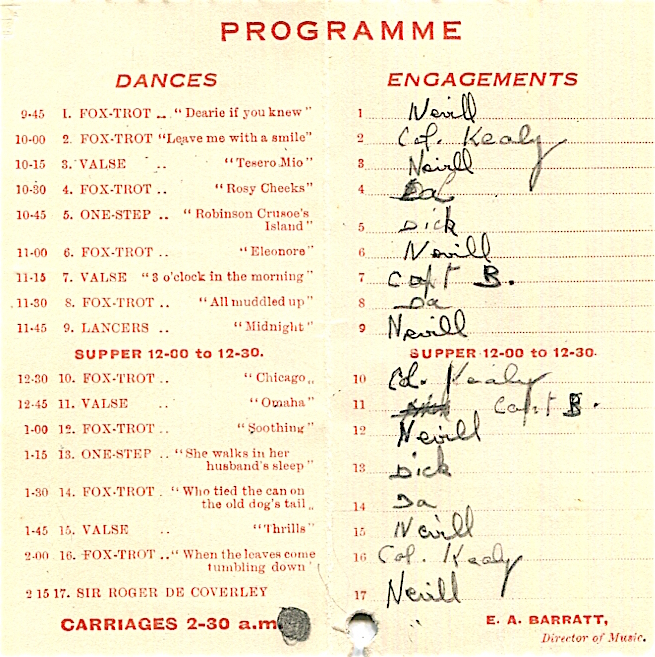 PROGRAMME
DANCES
9-45 1. FOX-TROT .. "Dearie if you knew"
10-00 2. FOX-TROT "Leave me with a smile"
10-15 3. VALSE .. "Tesero Mio"
10-30 4. FOX-TROT .. "Rosy Cheeks"
10-45 5. ONE-STEP .. "Robinson Crusoe's
Island"
11-00 6. FOX-TROT .. "Eleonore"
11-15 7. VALSE "3 o'clock in the morning"
11-30 8. FOX-TROT .. "All muddled up"
11-45 9. LANCERS .. "Midnight"
SUPPER 12-00 to 12-30.
12-30 10. FOX-TROT .. "Chicago„
12-45 11. VALSE .. "Omaha"
1-00 12. FOX-TROT .. "Soothing"
1-15 13. ONE-STEP .. "She walks in her
husband's sleep"
1-30 14. FOX-TROT . "Who tied the can on
the old dog's tail„
1-45 15. VALSE .. "Thrills"
2-00 16. FOX-TROT .. "When the leaves come
tumbling down"
2 15 17. SIR ROGER DE COVERLEY
CARRIAGES 2-30 a.m
ENGAGEMENTS
1 Nevill
2 Col. Kealy
3 Nevill
4 Da
5 Dick
6 Nevill
7 Capt B.
8 Da
9 Nevill
SUPPER 12-00 to 12-30.
10 Col. Kealy
11 Capt B.
12 Nevill
13 Dick
14 Da
15 Nevill
16 Col. Kealy
17 Nevill
E. A. BARRATT,
Director of Music.